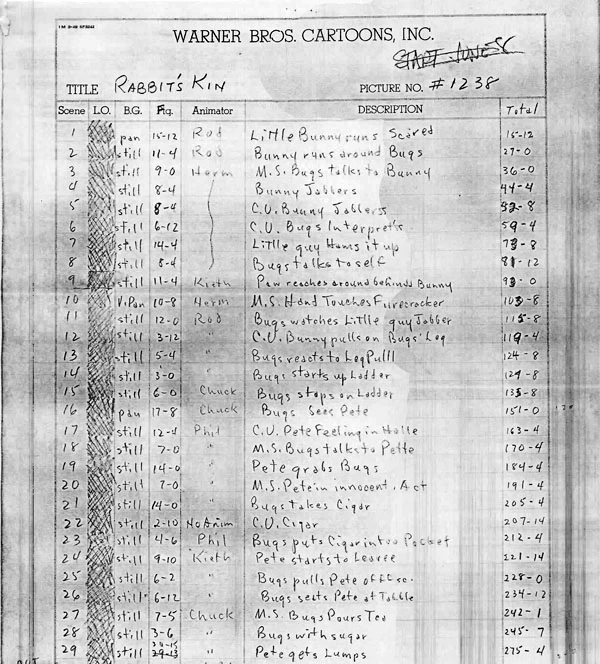 WARNER BROS. CARTOONS, INC.
TITLE RABBIT'S KIN PICTURE NO. #1238
Scene L.O. B.G. Fig. Animator DESCRIPTION Total
1 pan 15-12 Rod Little Bunny runs Scared 15-12
2 still 11-4 Rod Bunny runs around Bugs 27-0
3 still 9-0 Herm M.S. Bugs talks to Bunny 36-0
4 still 8-4 Bunny Jabbers 44-4
5 still 8-4 C.U. Bunny Jabbers 52-8
6 still 6-12 C.U. Bugs Interprets 59-4
7 still 14-4 Little guy Hams it up 73-8
8 still 8-4 Bugs talks to self 81-12
9 still 11-4 Kieth Paw reaches around behinds Bunny 93-0
10 V.Pan 10-8 Herm M.S. Hand Touches Firecracker 103-8
11 still 12-0 Rod Bugs watches Little guy Jabber 115-8
12 still 3-12 " C.U. Bunny pulls on Bugs' Leg 119-4
13 still 5-4 " Bugs reacts to Leg Pulll 124-8
14 still 3-0 " Bugs starts up Ladder 127-8
15 still 6-0 Chuck Bugs stops on Ladder 133-8
16 pan 17-8 Chuck Bugs Sees Pete 151-0
17 still 12-4 Phil C.U. Pete Feeling in Holle 163-4
18 still 7-0 " M.S. Bugs talks to Pette 170-4
19 still 14-0 " Pete grabs Bugs 184-4
20 still 7-0 " M.S. Pete in innocent Act 191-4
21 still 14-0 " Bugs takes Cigar 205-4
22 still 2-10 No Anim C.U. Cigar 207-14
23 still 4-6 Phil Bugs puts Cigar intoo Pocket 212-4
24 still 9-10 Kieth Pete starts to Leavee 221-14
25 still 6-2 " Bugs pulls Pete off 228-0
26 still 6-12 " Bugs seats Pete at Tabble 234-12
27 still 7-5 Chuck M.S. Bugs Pours Tea 242-1
28 still 3-6 " Bugs with sugar 245-7
29 still 29-13 " Pete gets Lumps 275-4